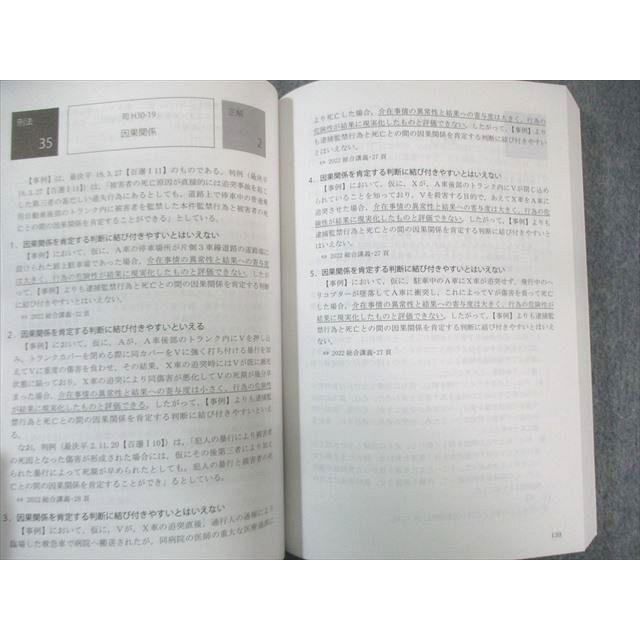 刑法
35
司H30-19
因果関係
正解
2
【事例】は、最決平 18.3.27【百選Ⅰ11】のものである。判例（最決平
18.3.27【百選Ⅰ11】）は、「被害者の死亡原因が直接的には追突事故を起こ
した第三者の甚だしい過失行為にあるとしても、道路上で停車中の普通乗
用自動車後部のトランク内に被害者を監禁した本件監禁行為と被害者の死
亡との間の因果関係を肯定することができる」としている。
1．因果関係を肯定する判断に結び付きやすいとはいえない
【事例】において、仮に、A車の停車場所が片側3車線道路の道路端に
設けられた路上駐車場であった場合、介在事情の異常性と結果への寄与度
は大きく、行為の危険性が結果に現実化したものと評価できない。したがっ
て、【事例】よりも逮捕監禁行為と死亡との間の因果関係を肯定する判断に
結び付きやすいとはいえない。
⇔ 2022 総合講義-22 頁
2．因果関係を肯定する判断に結び付きやすいといえる
【事例】において、仮に、Aが、A車後部のトランク内にVを押し込
み、トランクカバーを閉める際に同カバーをVに強く打ち付ける暴行を加
えてVに重度の傷害を負わせ、その結果、X車の追突時にはVが既に瀕死
状態に陥っており、X車の追突により同傷害が悪化してVの死期が幾分早
まった場合、介在事情の異常性と結果への寄与度は小さく、行為の危険性
が結果に現実化したものと評価できる。したがって、【事例】よりも逮捕監
禁行為と死亡との間の因果関係を肯定する判断に結び付きやすいといえ
る。
なお、判例（最決平 2.11.20【百選Ⅰ10】）は、「犯人の暴行により被害者
の死因となった傷害が形成された場合には、仮にその後第三者により加え
られた暴行によって死期が早められたとしても、犯人の暴行と被害者の死
亡との間の因果関係を肯定することができ」るとしている。
⇔ 2022 総合講義-28 頁
3．因果関係を肯定する判断に結び付きやすいとはいえない
【事例】において、仮に、Vが、X車の追突直後、通行人の通報により
臨場した救急車で病院へ搬送されたが、同病院の医師の重大な医療過誤に
より死亡した場合、介在事情の異常性と結果への寄与度は大きく、行為の
危険性が結果に現実化したものと評価できない。したがって、【事例】より
も逮捕監禁行為と死亡との間の因果関係を肯定する判断に結び付きやすい
とはいえない。
⇔ 2022 総合講義-27 頁
4．因果関係を肯定する判断に結び付きやすいとはいえない
【事例】において、仮に、Xが、A車後部のトランク内にVが閉じ込め
られていることを知っており、Vを殺害する目的で、あえてX車をA車に
追突させた場合、介在事情の異常性と結果への寄与度は大きく、行為の危
険性が結果に現実化したものと評価できない。したがって、【事例】よりも
逮捕監禁行為と死亡との間の因果関係を肯定する判断に結び付きやすいと
はいえない。
⇔ 2022 総合講義-27 頁
5．因果関係を肯定する判断に結び付きやすいとはいえない
【事例】において、仮に、駐車中のA車にX車が追突せず、飛行中のヘ
リコプターが墜落してA車に衝突し、これによってVが傷害を負って死亡
した場合、介在事情の異常性と結果への寄与度は大きく、行為の危険性が
結果に現実化したものと評価できない。したがって、【事例】よりも逮捕監
禁行為と死亡との間の因果関係を肯定する判断に結び付きやすいとはいえ
ない。
⇔ 2022 総合講義-27 頁
139